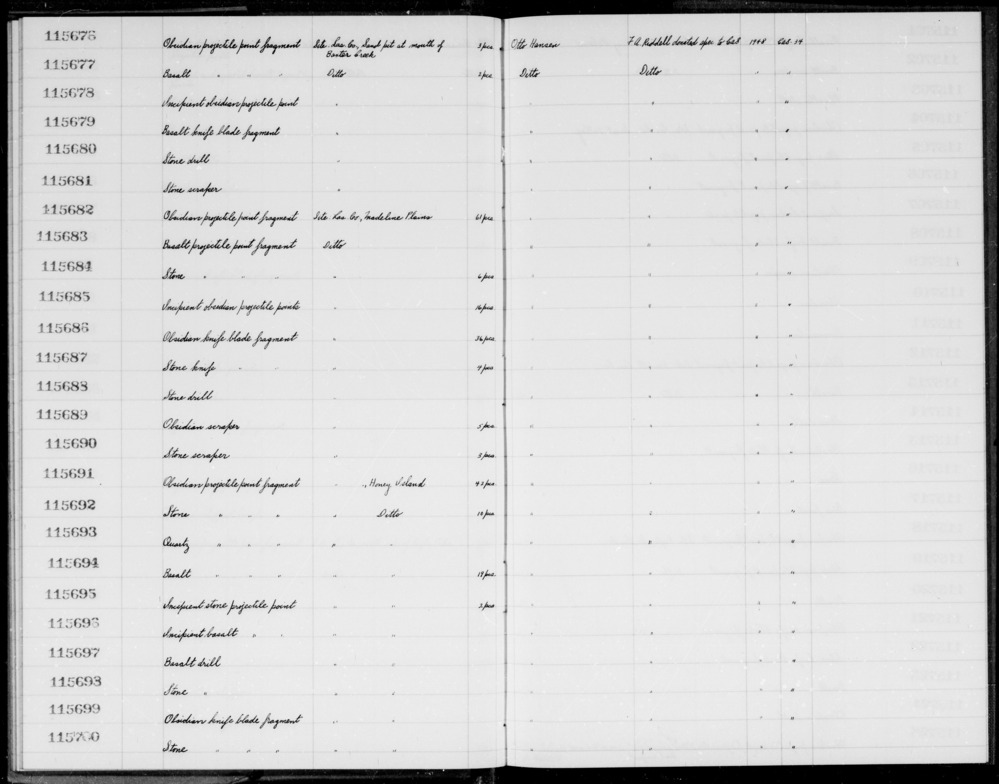 115676 Obsidian projectile point fragment Site Las. Co., Sand pit at mouth of 3 pcs. Otto Hansen F.A. Riddell donated spec. to Cas 1948 Cas. 44
Baxter Creek
115677 Basalt " " " Ditto 2 pcs. Ditto Ditto " "
115678 Incipient obsidian projectile point " " " " "
115679 Basalt knife blade fragment " " " " "
115680 Stone drill " " " " "
115681 Stone scraper " " " " "
115682 Obsidian projectile point fragment Site Las. Co., Madeline Plains 61 pcs. " " " "
115683 Basalt projectile point fragment Ditto " " " "
115684 Stone " " " " 6 pcs. " " " "
115685 Incipient obsidian projectile points " 16 pcs. " " " "
115686 Obsidian knife blade fragment " 36 pcs. " " " "
115687 Stone knife " " " 9 pcs. " " " "
115688 Stone drill " " " " "
115689 Obsidian scraper " 5 pcs. " " " "
115690 Stone scraper " 5 pcs. " " " "
115691 Obsidian projectile point fragment " ", Honey Island 43 pcs. " " " "
115692 Stone " " " " Ditto 10 pcs. " " " "
115693 Quartz " " " " " " " " "
115694 Basalt " " " " " 19 pcs. " " " "
115695 Incipient stone projectile point " " 3 pcs. " " " "
115696 Incipient basalt " " " " " " " "
115697 Basalt drill " " " " " "
115698 Stone " " " " " " "
115699 Obsidian knife blade fragment " " " " " "
115700 Stone " " " " " " " " "